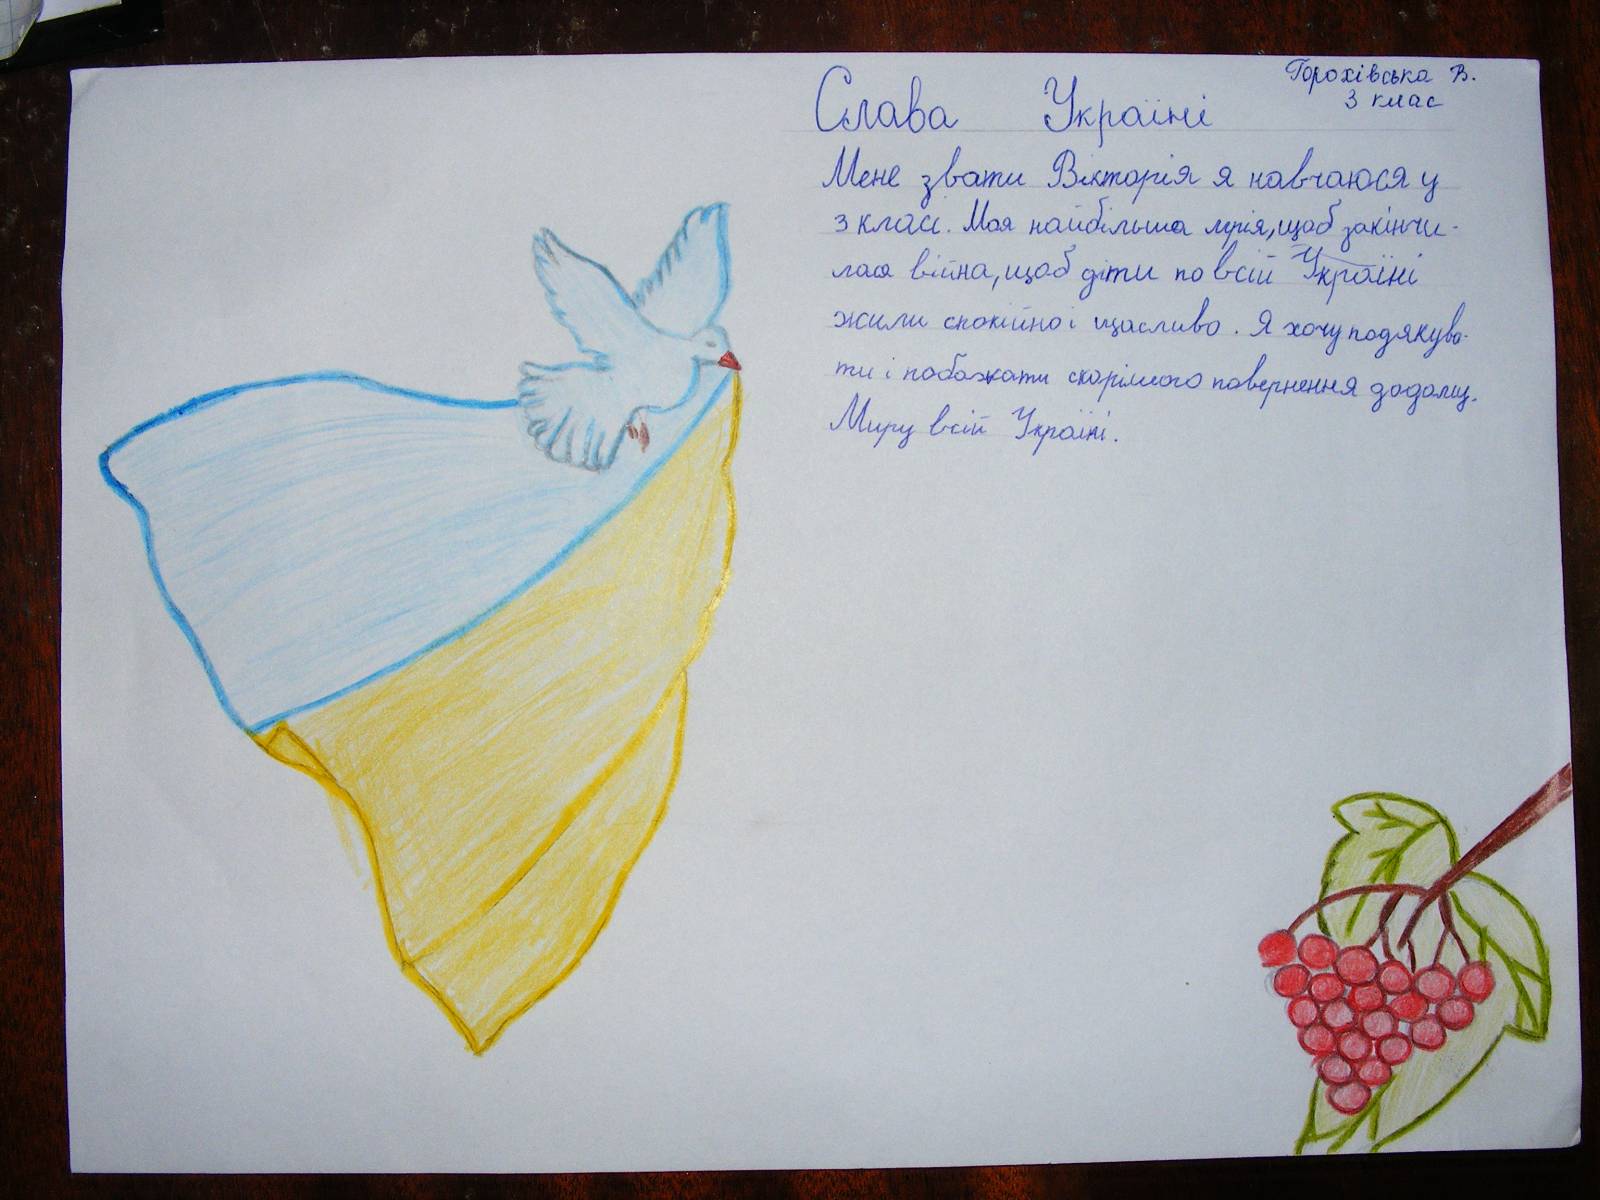 Горохівська В.
3 клас
Слава Україні
Мене звати Вікторія я навчаюся у
3 класі. Моя найбільша мрія, щоб закінчи-
лася війна, щоб діти по всій Україні
жили спокійно і щасливо. Я хочу подякува-
ти і побажати скорішого повернення додому.
Миру всій Україні.